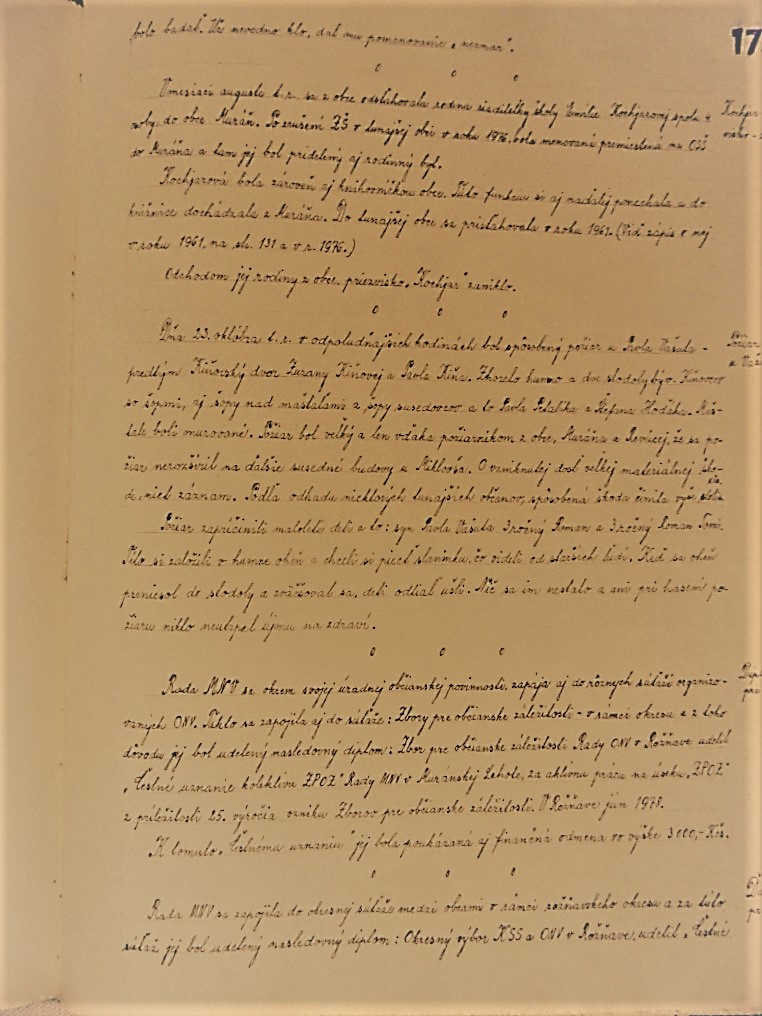 bolo badať. Už nevedno kto, dal mu pomenovanie „nezmar".
17
o o o
V mesiaci auguste t. r. sa z obce odsťahovala rodina riaditeľky školy Emílie Kochjarovej spolu 4
osoby, do obce Muráň. Po zrušení ZŠ v tunajšej obci v roku 1976, bola menovaná premiestená na OSŠ
do Muráňa a tam jej bol pridelený aj rodinný byt.
Kochjar
Kochjarová bola zároveň aj knihovníčkou obce. Túto funkciu si aj naďalej ponechala a do
knižnice dochádzala z Muráňa. Do tunajšej obce sa prisťahovala v roku 1961. (Viď zápis v nej
v roku 1961, na str. 131 a v r. 1976.)
Odchodom jej rodiny z obce, priezvisko „Kochjar" zaniklo.
o o o
Dňa 23. októbra t. r. v odpoludňajších hodinách bol spôsobený požiar u Pavla Vašuta -
predtým Kiňovský dvor Zuzany Kiňovej a Pavla Kiňa. Zhorelo humno a dve stodoly býv. Kiňovcov
so šopmi, aj šopy nad maštaľami a šopy susedovcov a to Pavla a Štefana Hoďáka. Maš-
tale boli murované. Požiar bol veľký a len vďaka požiarnikom z obce, Muráňa a Revúcej, že sa po-
žiar nerozšíril na ďalšie susedné budovy u Mikloša. O vzniknutej dosť veľkej materiálnej ško-
de, niet záznam. Podľa odhadu niektorých tunajších občanov, spôsobená škoda činila vyše
Požiar
Požiar zapríčinili maloleté deti a to: syn Pavla Vašuta 3 ročný Roman a 3 ročný Roman
Títo si založili v humne oheň a chceli si piecť slaninku, čo videli od starších ľudí. Keď sa oheň
preniesol do stodoly a zväčšoval sa, deti odtiaľ ušli. Nič sa im nestalo a ani pri hasení po-
žiaru nikto neutrpel újmu na zdraví.
o o o
Rada MNV sa okrem svojej úradnej občianskej povinnosti, zapája aj do rôznych súťaží organizo-
vaných ONV. Takto sa zapojila aj do súťaže: Zbory pre občianske záležitosti - v rámci okresu a z toho
dôvodu jej bol udelený nasledovný diplom: Zbor pre občianske záležitosti Rady ONV v Rožňave udelil
„Čestné uznanie kolektívu ZPOZ" Rady MNV v Muránskej Lehote, za aktívnu prácu na úseku „ZPOZ"
z príležitosti 25. výročia vzniku Zborov pre občianske záležitosti. V Rožňave jún 1978.
K tomuto „Čestnému uznaniu" jej bola poukázaná aj finančná odmena vo výške 3 000,- Kčs.
o o o
Rada MNV sa zapojila do okresnej súťaže medzi obcami v rámci rožňavského okresu a za túto
súťaž jej bol udelený nasledovný diplom: Okresný výbor KSS a ONV v Rožňave, udelil „Čestné